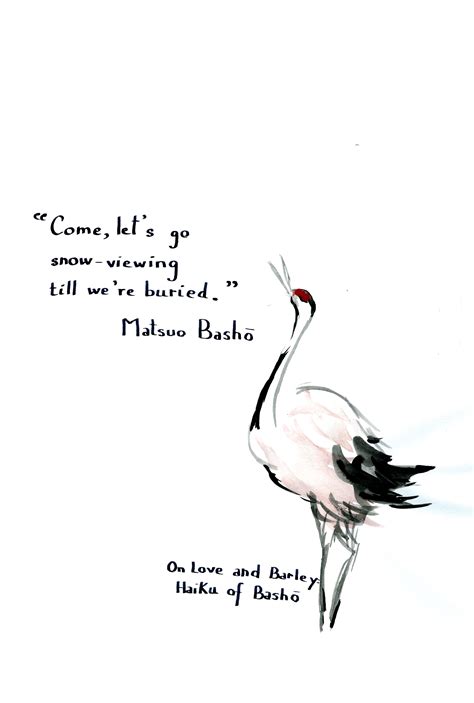 “Come, let's go
snow-viewing
till we're buried.”
Matsuo Bashō
On Love and Barley:
Haiku of Bashō